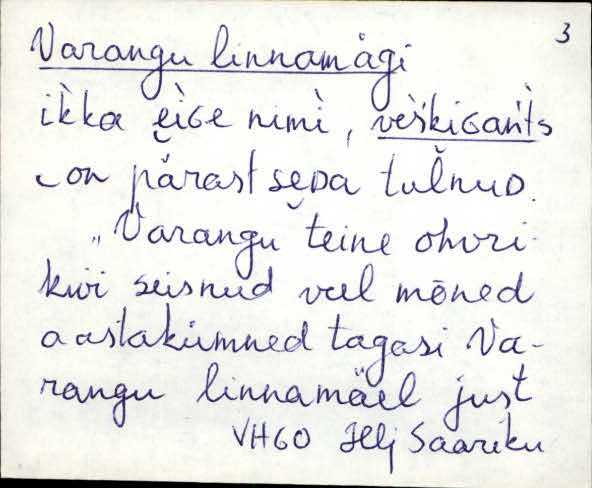 3
Varangu linnamägi
ikka eiGe nimi, veškiGants
on pärast seDa tulnuD.
„Varangu teine ohvri-
kivi seisnud veel mõned
aastakümned tagasi Va-
rangu linnamäel just
VH60 Hlj Saariku